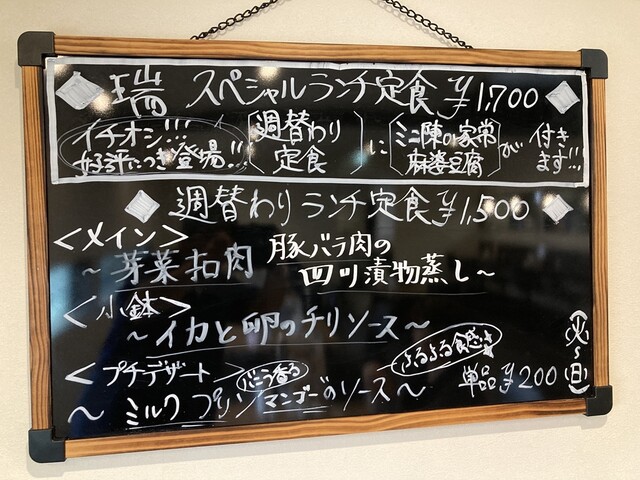 瑞 スペシャルランチ定食 ¥1,700
イチオシ!!!
好評につき登場!!
週替わり
定食
に
ミニ陳の家常
麻婆豆腐
が
付き
ます!!!
週替わりランチ定食 ¥1,500
<メイン>
~芽菜扣肉
豚バラ肉の
四川漬物蒸し~
<小鉢>
~イカと卵のチリソース~
<プチデザート>
バニラ香る
ぷるぷる食感
~ミルクプリンマンゴーのソース~
単品¥200
(火~日)